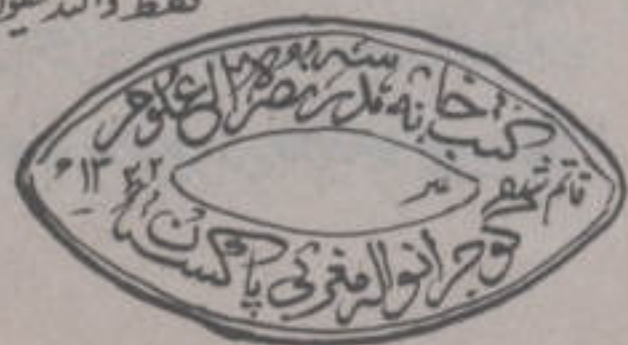 فقط واللہ
کتب خانہ مدرسہ نصرۃ العلوم
قائم شدہ ۱۳۷۲ھ
گوجرانوالہ مغربی پاکستان
نمبر